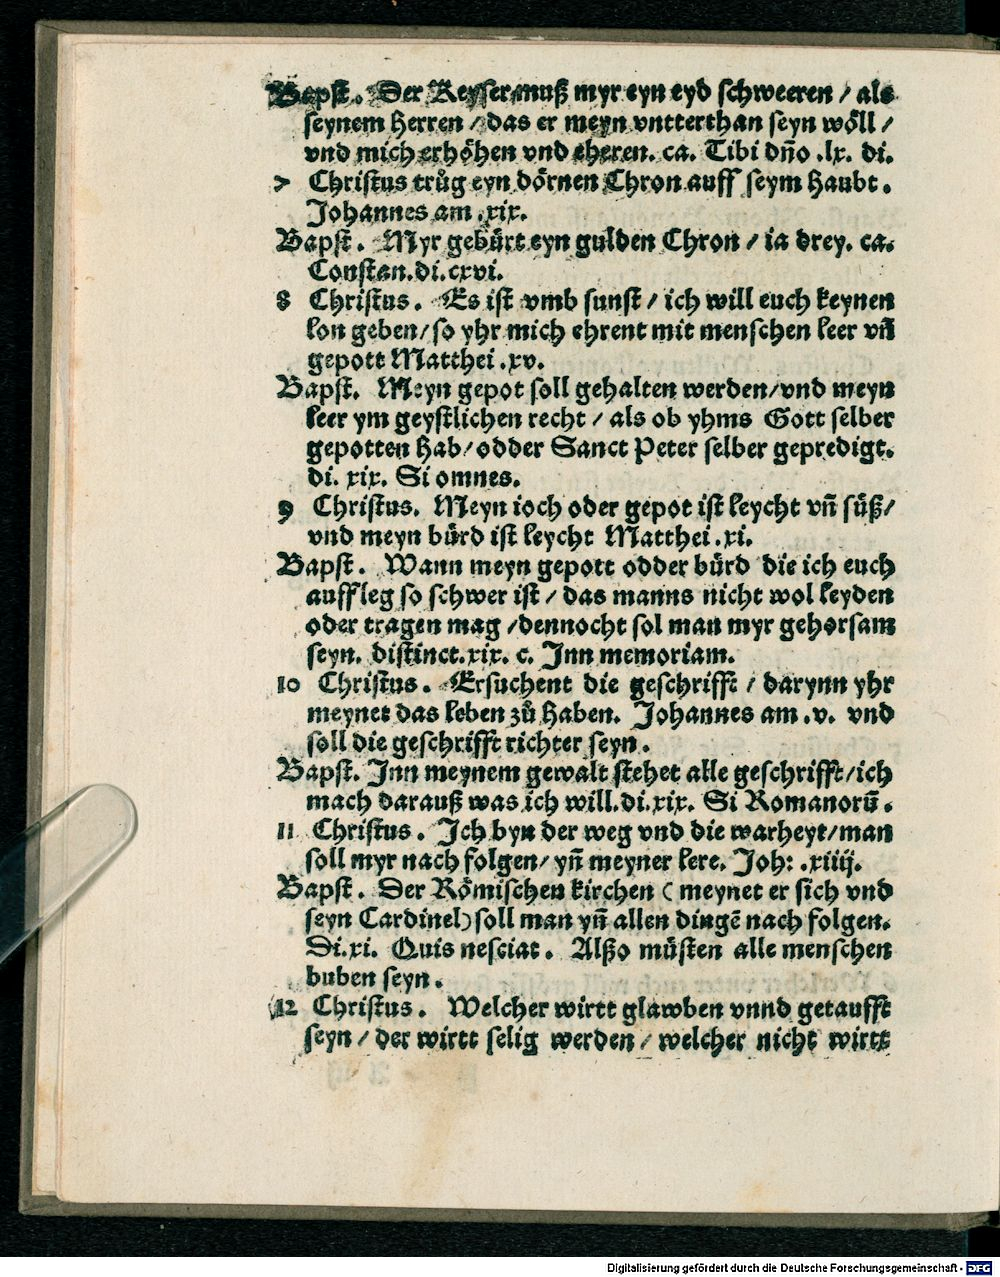 Bapst. Der Keyser muß myr eyn eyd schweeren / als
seynem Herren / das er meyn vntterthan seyn wöll /
vnd mich erhöhen vnd eheren. ca. Tibi dño .lx. di.
7 Christus trůg eyn dörnen Chron auff seym Haubt.
Johannes am .xix.
Bapst. Myr gebürt eyn gulden Chron / ia drey. ca.
Constan. di. cxvi.
8 Christus. Es ist vmb sunst / ich will euch keynen
lon geben / so yhr mich ehrent mit menschen leer vñ
gepott Matthei .xv.
Bapst. Meyn gepot soll gehalten werden / vnd meyn
leer ym geystlichen recht / als ob yhms Gott selber
gepotten hab / odder Sanct Peter selber gepredigt.
di. xix. Si omnes.
9 Christus. Meyn ioch oder gepot ist leycht vñ süß /
vnd meyn bürd ist leycht Matthei .xi.
Bapst. Wann meyn gepott odder bürd die ich euch
auff leg so schwer ist / das manns nicht wol leyden
oder tragen mag / dennocht sol man myr gehorsam
seyn. distinct. xix. c. Inn memoriam.
10 Christus. Ersuchent die geschrifft / darynn yhr
meynet das leben zů haben. Johannes am .v. vnd
soll die geschrifft richter seyn.
Bapst. Inn meynem gewalt stehet alle geschrifft / ich
mach darauß was ich will. di. xix. Si Romanorū.
11 Christus. Ich byn der weg vnd die warheyt / man
soll myr nach folgen / yñ meyner lere. Joh: .xiiij.
Bapst. Der Römischen kirchen (meynet er sich vnd
seyn Cardinel) soll man yñ allen dingē nach folgen.
Di. xi. Quis nesciat. Alßo müsten alle menschen
buben seyn.
12 Christus. Welcher wirtt glawben vnnd getaufft
seyn / der wirtt selig werden / welcher nicht wirtt
Digitalisierung gefördert durch die Deutsche Forschungsgemeinschaft - DFG